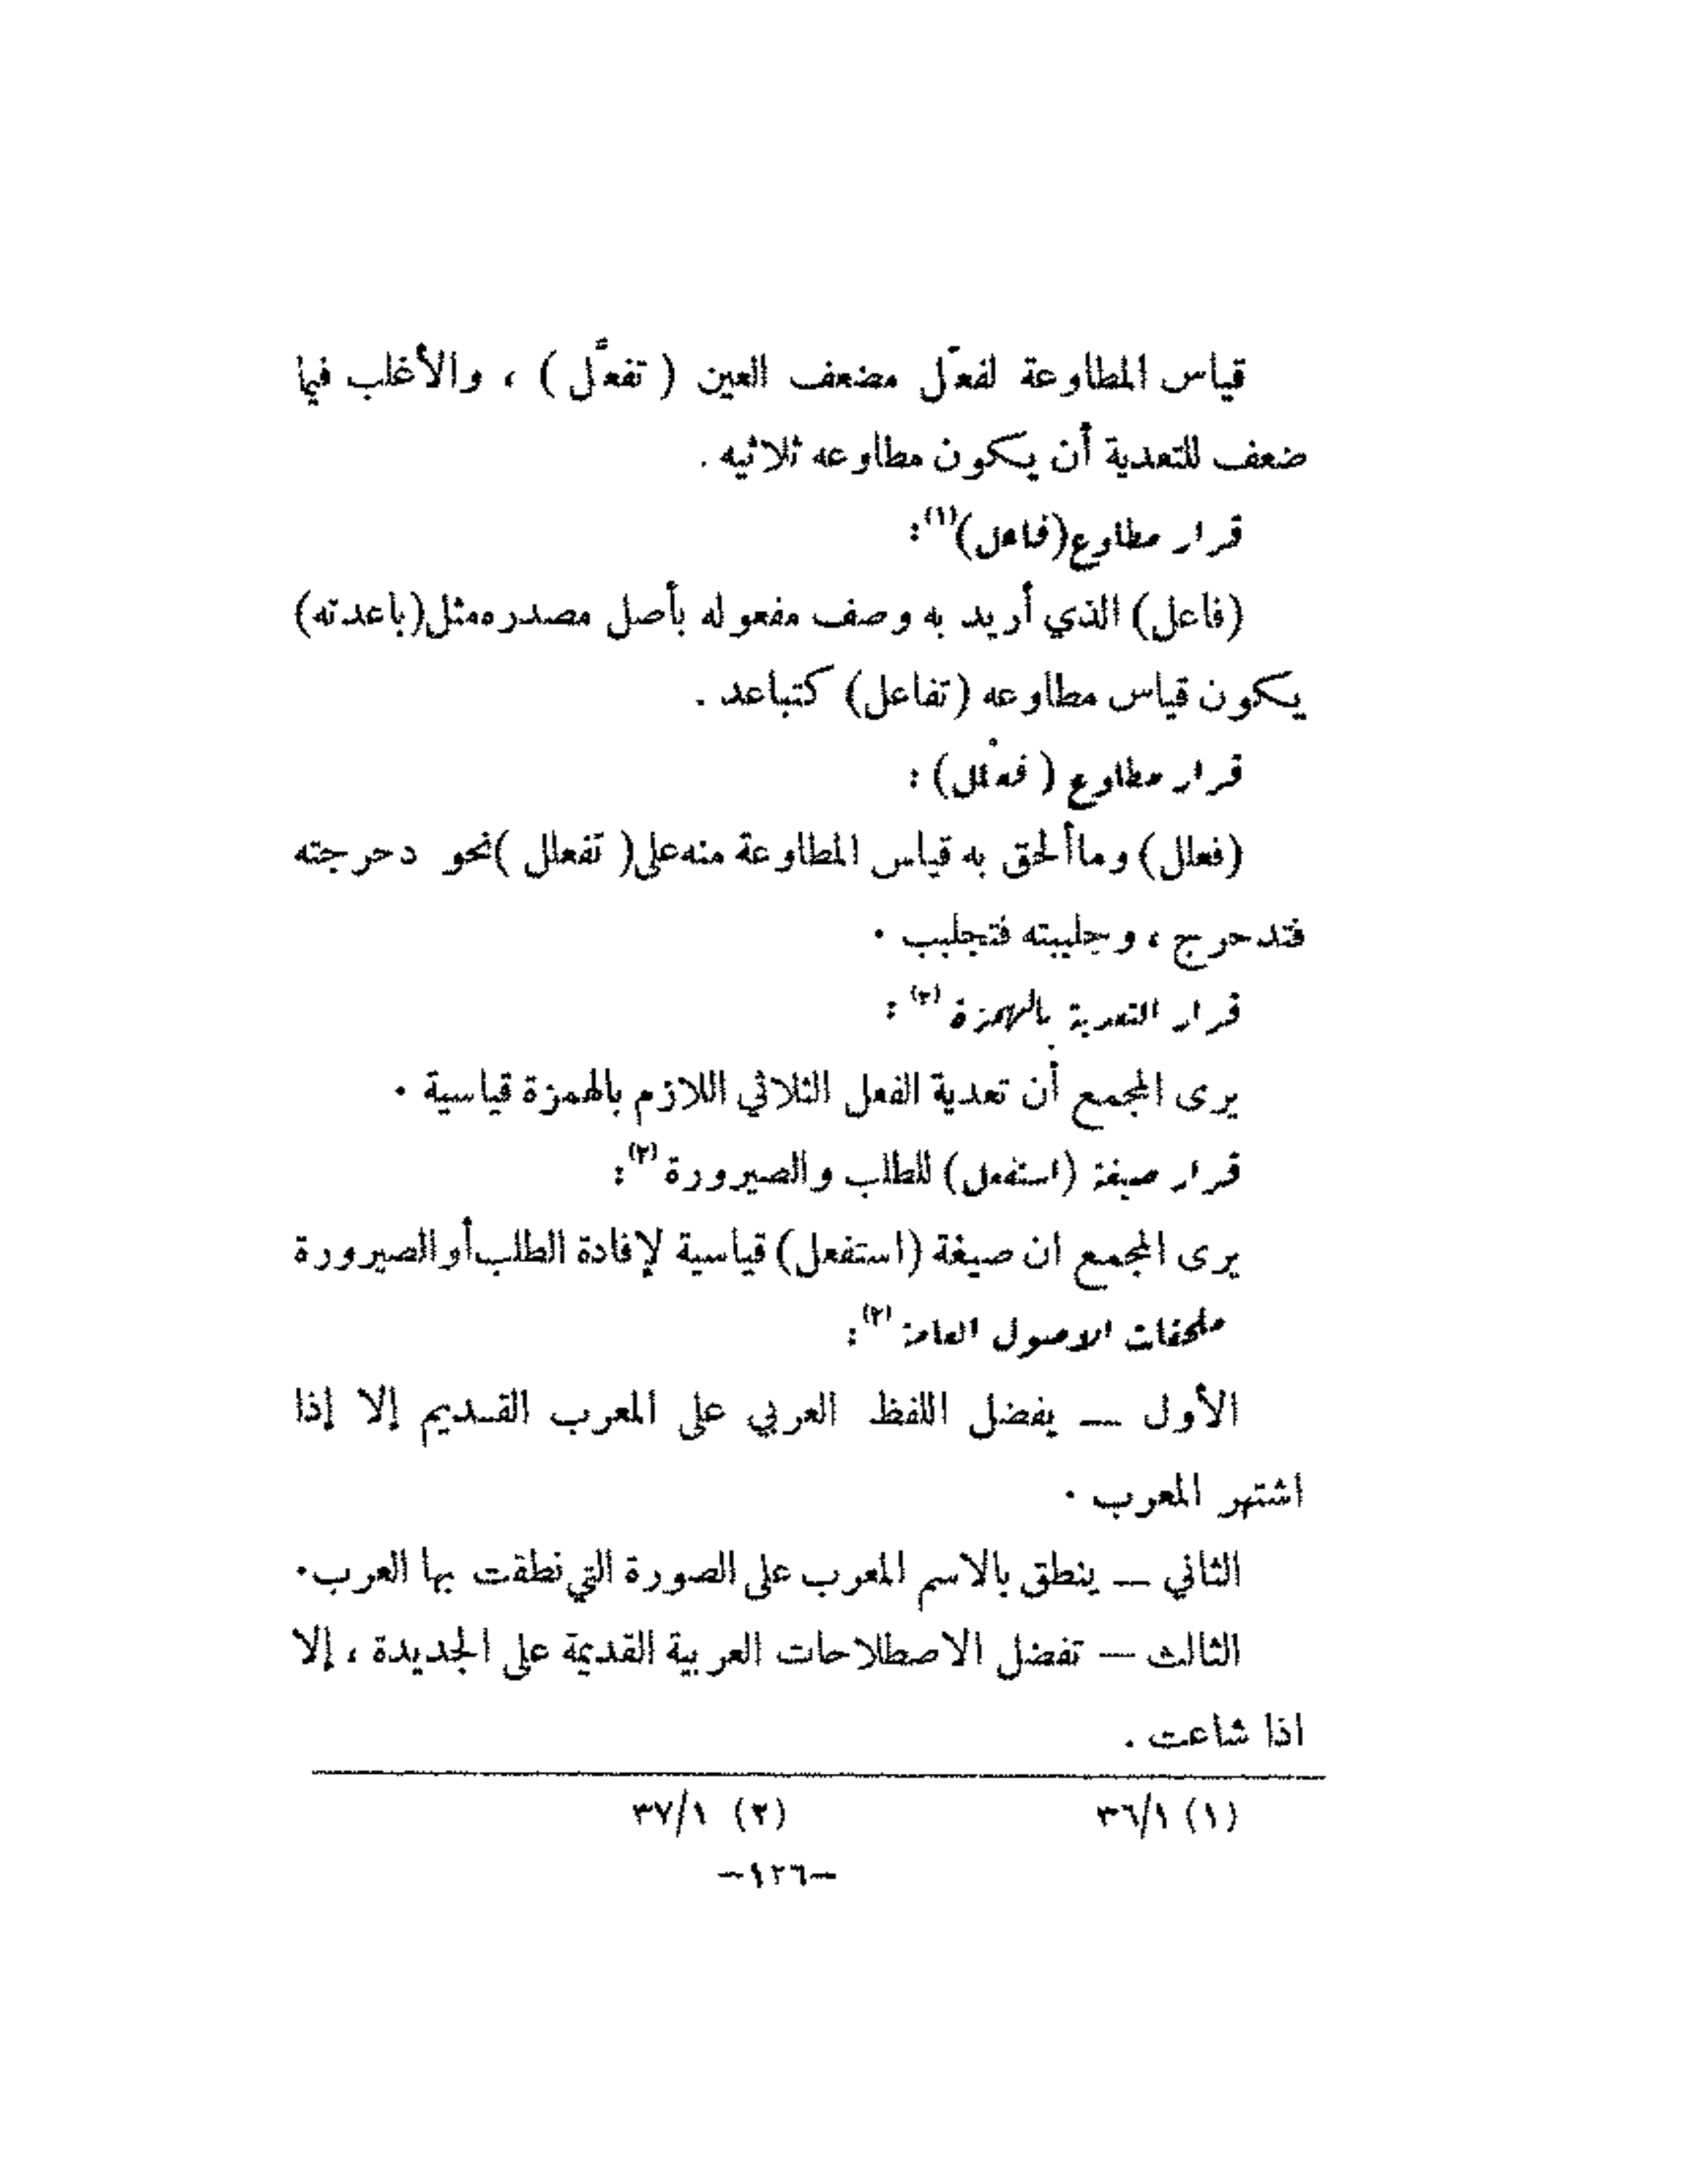 قياس المطاوعة لفعّل مضعف العين ( تفعَّل ) ، والأغلب فيما
ضعف للتعدية أن يكون مطاوعه ثلاثيه .
قرار مطاوع (فاعل)(١):
(فاعل) الذي أريد به وصف مفعوله بأصل مصدره مثل (باعدته)
يكون قياس مطاوعه (تفاعل) كتباعد .
قرار مطاوع ( فعْلل) :
(فعلل) وما ألحق به قياس المطاوعة منه على ( تفعلل ) نحو دحرجته
فتدحرج ، وجلببته فتجلبب .
قرار التعدية بالهمزة (٢) :
يرى المجمع أن تعدية الفعل الثلاثي اللازم بالهمزة قياسية .
قرار صيغة (استفعل) للطلب والصيرورة (٢):
يرى المجمع ان صيغة (استفعل) قياسية لإفادة الطلب أو الصيرورة
ملحقات الاصول العامة (٢):
الأول — يفضل اللفظ العربي على المعرب القديم إلا إذا
اشتهر المعرب .
الثاني — ينطق بالاسم المعرب على الصورة التي نطقت بها العرب.
الثالث — تفضل الاصطلاحات العربية القديمة على الجديدة ، إلا
اذا شاعت .
(١) ٣٦/١ (٢) ٣٧/١
—١٢٦—